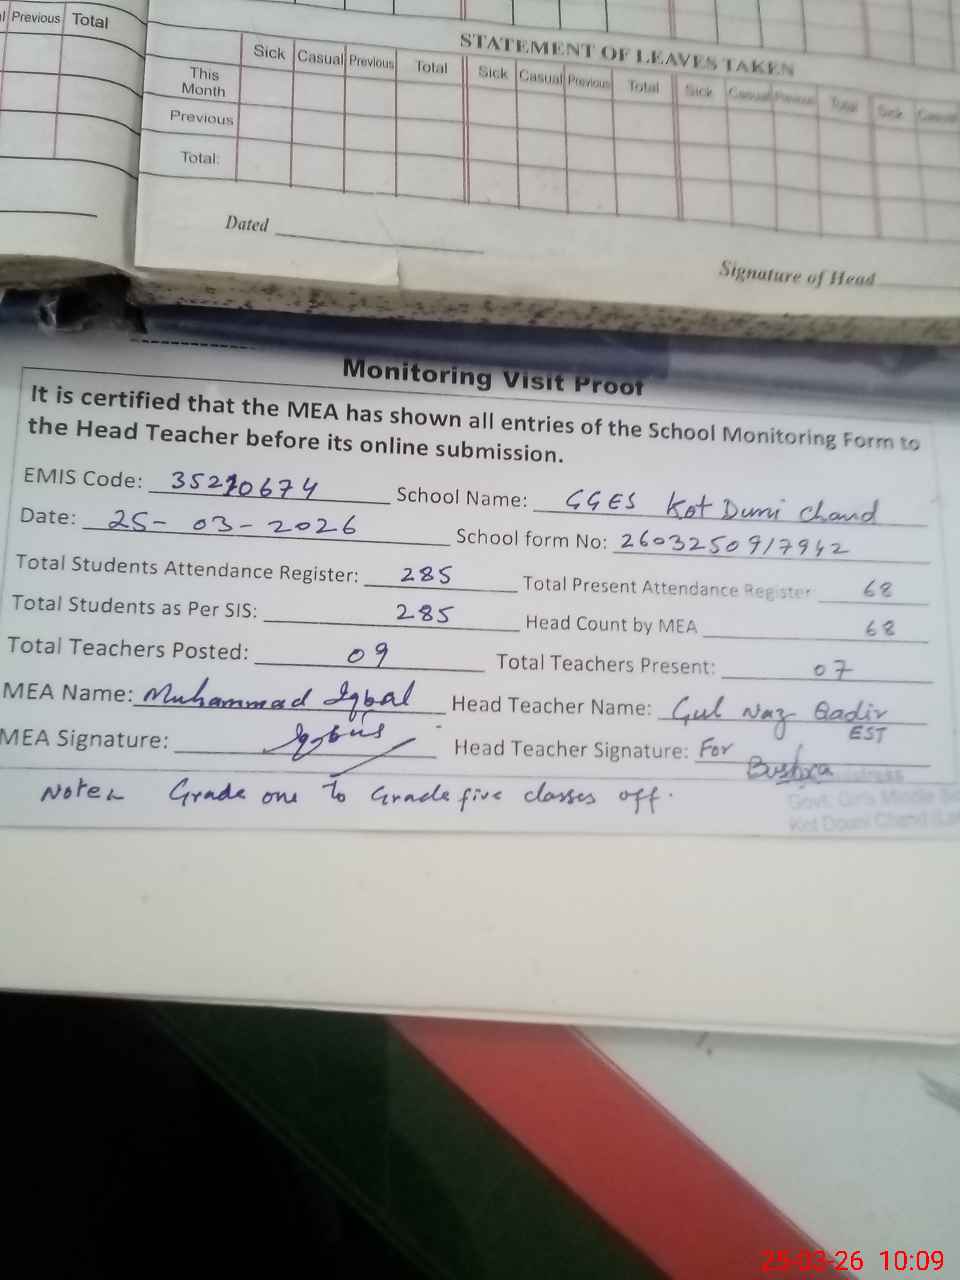 Previous Total
STATEMENT OF LEAVES TAKEN
Sick Casual Previous Total Sick Casual Previous Total Sick Casual Previous Total Sick Casual
This Month
Previous
Total:
Dated
Signature of Head
Monitoring Visit Proof
It is certified that the MEA has shown all entries of the School Monitoring Form to
the Head Teacher before its online submission.
EMIS Code: 35210674 School Name: GGES Kot Dumi Chand
Date: 25-03-2026 School form No: 2603250917942
Total Students Attendance Register: 285 Total Present Attendance Register 68
Total Students as Per SIS: 285 Head Count by MEA 68
Total Teachers Posted: 09 Total Teachers Present: 07
MEA Name: Muhammad Iqbal Head Teacher Name: Gul Naz Qadir
EST
MEA Signature: Head Teacher Signature: For
Bushra
Note:- Grade one To Grade five classes off.
Govt. Girls Middle
Kot Doumi Chand
25-03-26 10:09